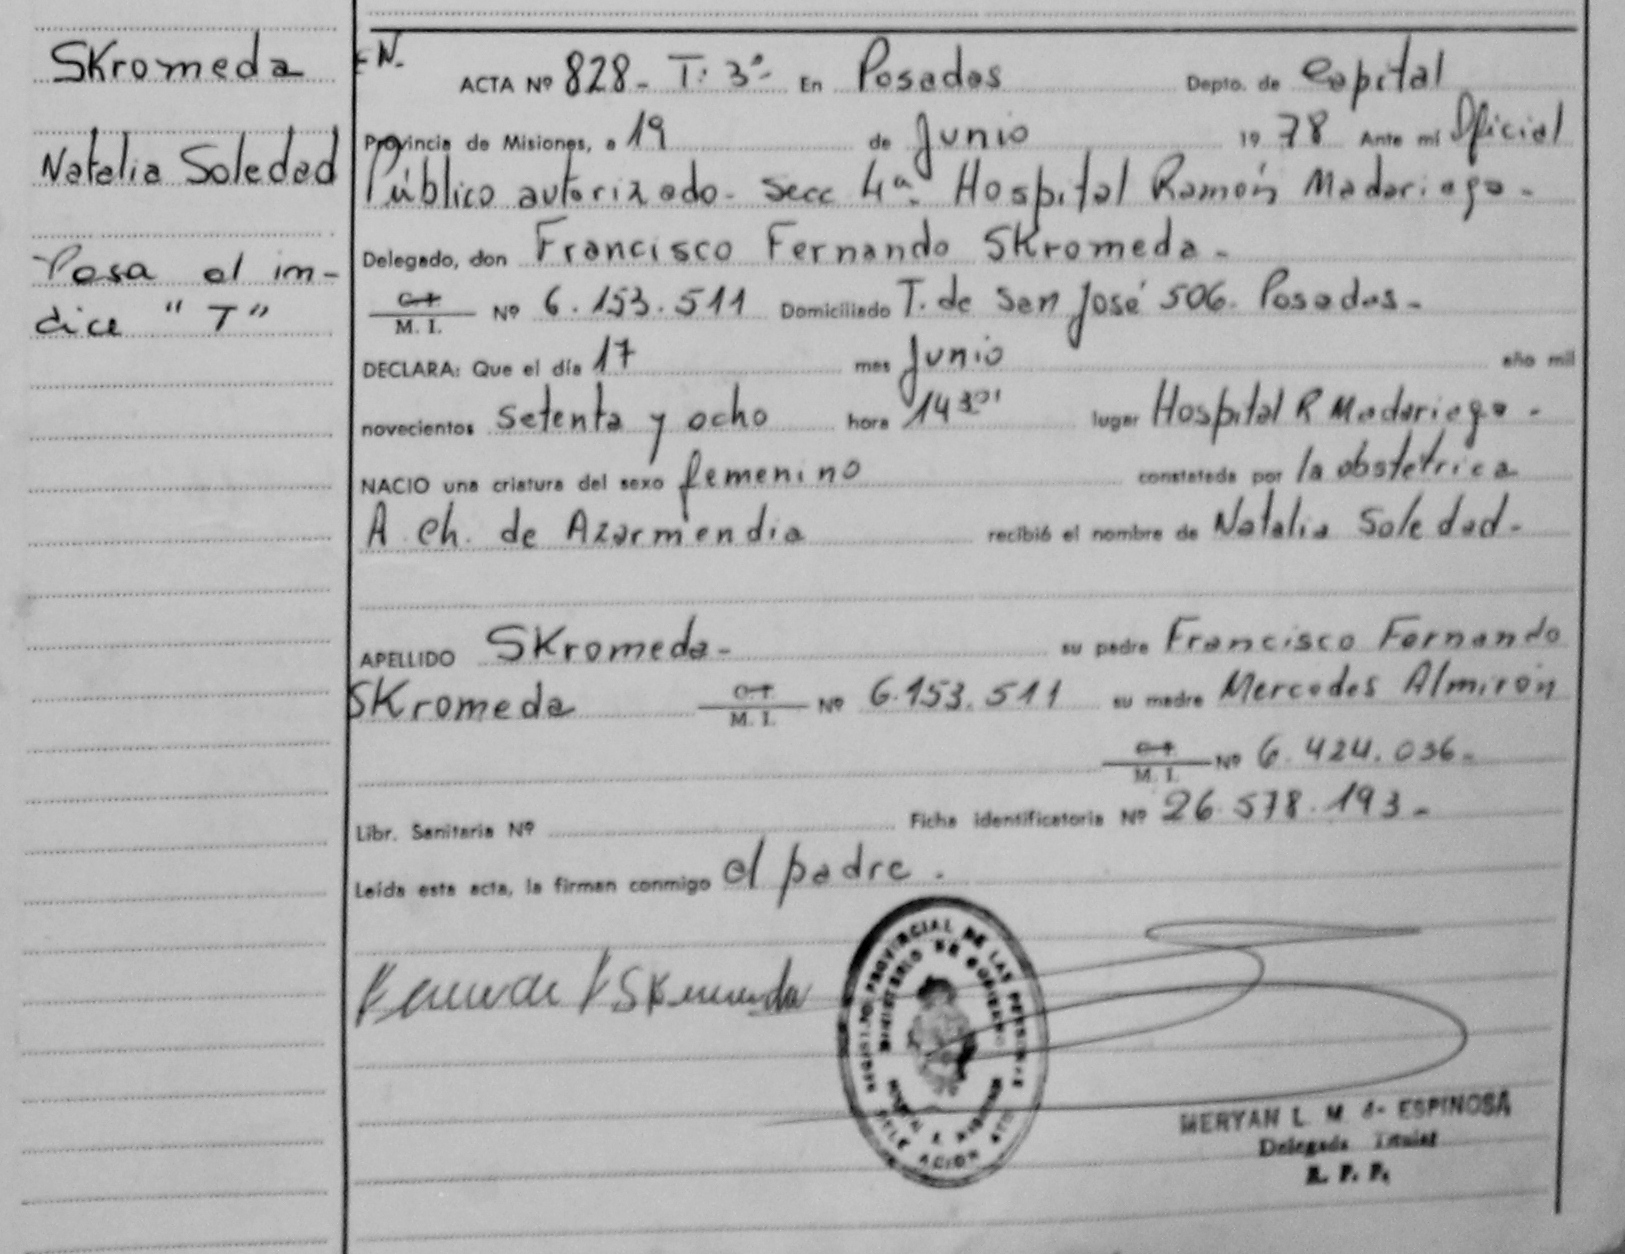 Skromeda
Natalia Soledad
Pasa al im-
dice "T"
N.
ACTA Nº 828- T: 3º- En Posadas Depto. de Capital
Provincia de Misiones, a 19 de Junio 19 78 Ante mí Oficial
Público autorizado- secc 4ª Hospital Ramón Madariaga-
Delegado, don Francisco Fernando Skromeda-
C.I. M. I. Nº 6.153.511 Domiciliado T. de San José 506. Posadas-
DECLARA: Que el día 17 mes Junio año mil
novecientos setenta y ocho hora 14 30' lugar Hospital R Madariaga-
NACIO una criatura del sexo femenino constatada por la obstetrica
A Ch. de Azarmendia recibió el nombre de Natalia Soledad-
APELLIDO Skromeda- su padre Francisco Fernando
Skromeda C.I. M. I. Nº 6.153.511 su madre Mercedes Almirón
C.I. M. I. Nº 6.424.036-
Libr. Sanitaria Nº Ficha identificatoria Nº 26.578.193-
Leída esta acta, la firman conmigo el padre.
REGISTRO PROVINCIAL DE LAS PERSONAS
MINISTERIO DE GOBIERNO
HOSPITAL R. MADARIAGA
DELEGACION
MERYAN L. M. de ESPINOSA
Delegada Titular
R. P. P.